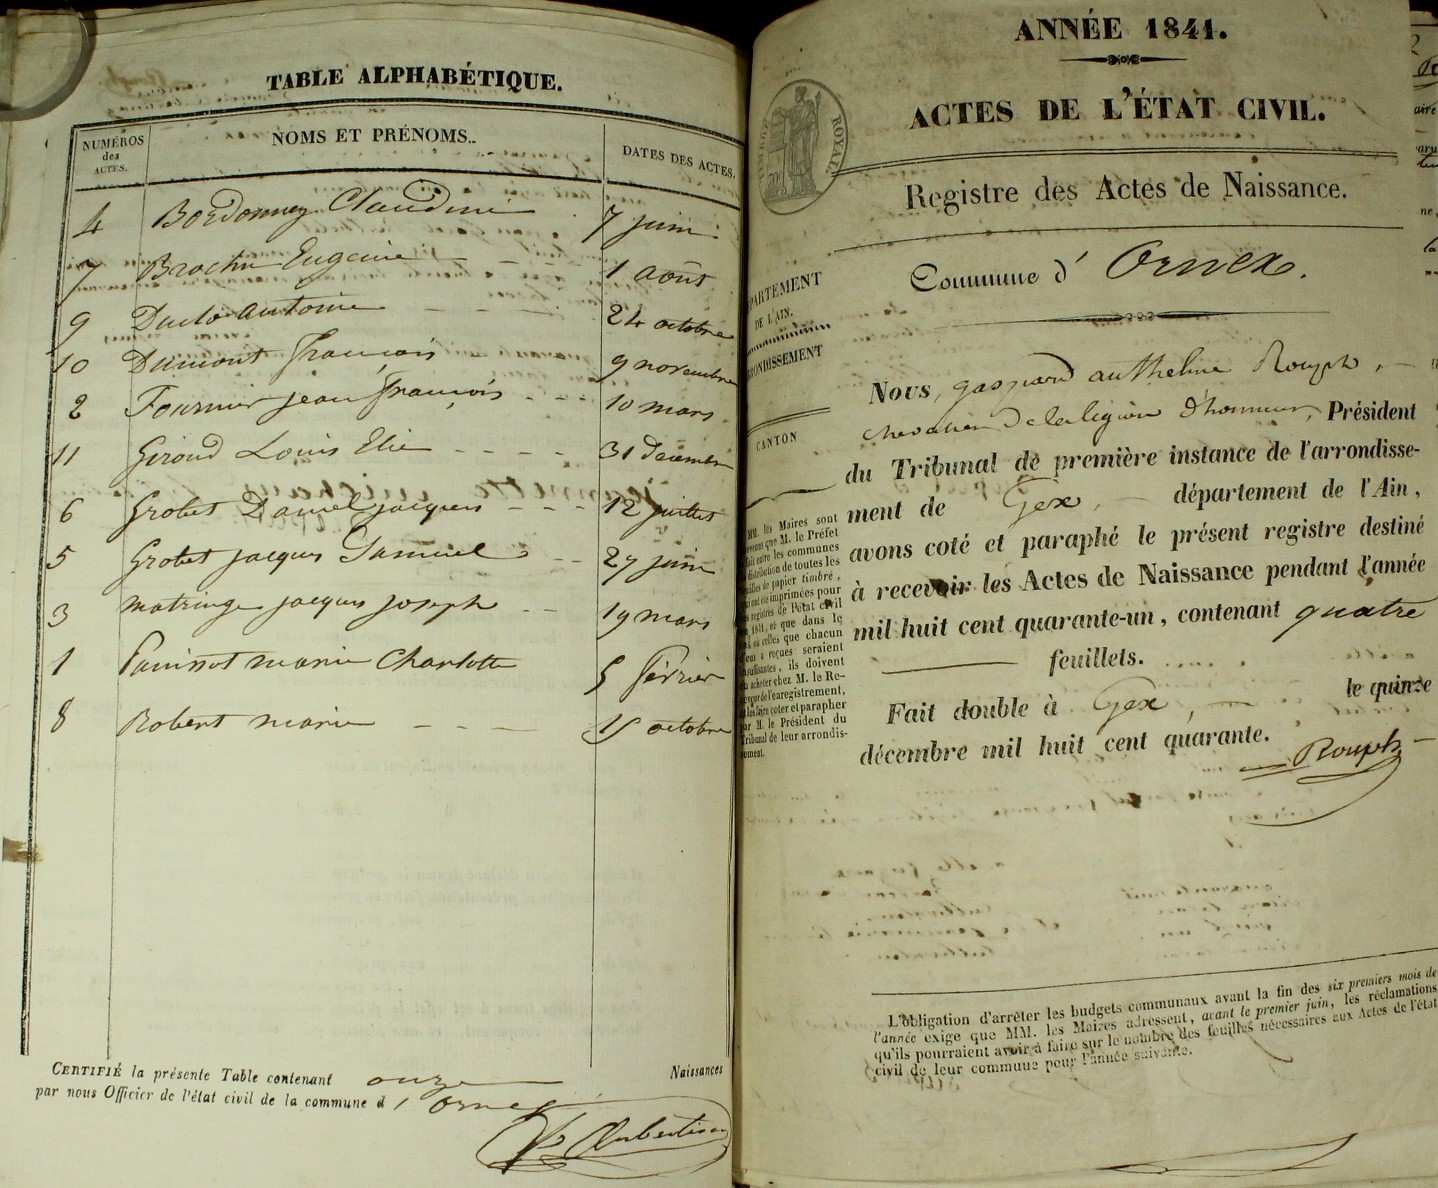 TABLE ALPHABÉTIQUE.
NUMÉROS
des
ACTES.
NOMS ET PRÉNOMS.
DATES DES ACTES.
4 Bordonney Claudine 7 juin
7 Brochu Eugenie 1 août
9 Duclo antoine 24 octobre
10 Dumont françois 9 novembre
2 Fournier jean françois 10 mars
11 Giroud Louis Elie 31 décembre
6 Grobet Daniel jacques 12 juillet
5 Grobet jacques Samuel 27 juin
3 matringe jacques joseph 19 mars
1 Panissot marie Charlotte 5 février
8 Robert marie 15 octobre
CERTIFIÉ la présente Table contenant onze Naissances
par nous Officier de l'état civil de la commune d'Ornex
ANNÉE 1841.
ACTES DE L'ÉTAT CIVIL.
TIMBRE ROYAL
Registre des Actes de Naissance.
Commune d' Ornex.
PARTEMENT
DE L'AIN.
RONDISSEMENT
CANTON
MM. les Maires sont
que M. le Préfet
entre les communes
distribution de toutes les
feuilles de papier timbré,
ont été imprimées pour
registres de l'état civil
1841, et que dans le
où celles que chacun
a reçues seraient
insuffisantes, ils doivent
acheter chez M. le Re-
ceveur de l'enregistrement,
les faire coter et parapher
par M. le Président du
Tribunal de leur arrondis-
sement.
Nous, gaspard anthelme Rouph,
chevalier de la légion d'honneur, Président
du Tribunal de première instance de l'arrondisse-
ment de Gex, département de l'Ain,
avons coté et paraphé le présent registre destiné
à recevoir les Actes de Naissance pendant l'année
mil huit cent quarante-un, contenant quatre
feuillets.
Fait double à Gex, le quinze
décembre mil huit cent quarante.
Rouph
L'obligation d'arrêter les budgets communaux avant la fin des six premiers mois de
l'année exige que MM. les Maires adressent, avant le premier juin, les réclamations
qu'ils pourraient avoir à faire sur le nombre des feuilles nécessaires aux Actes de l'état
civil de leur commune pour l'année suivante.